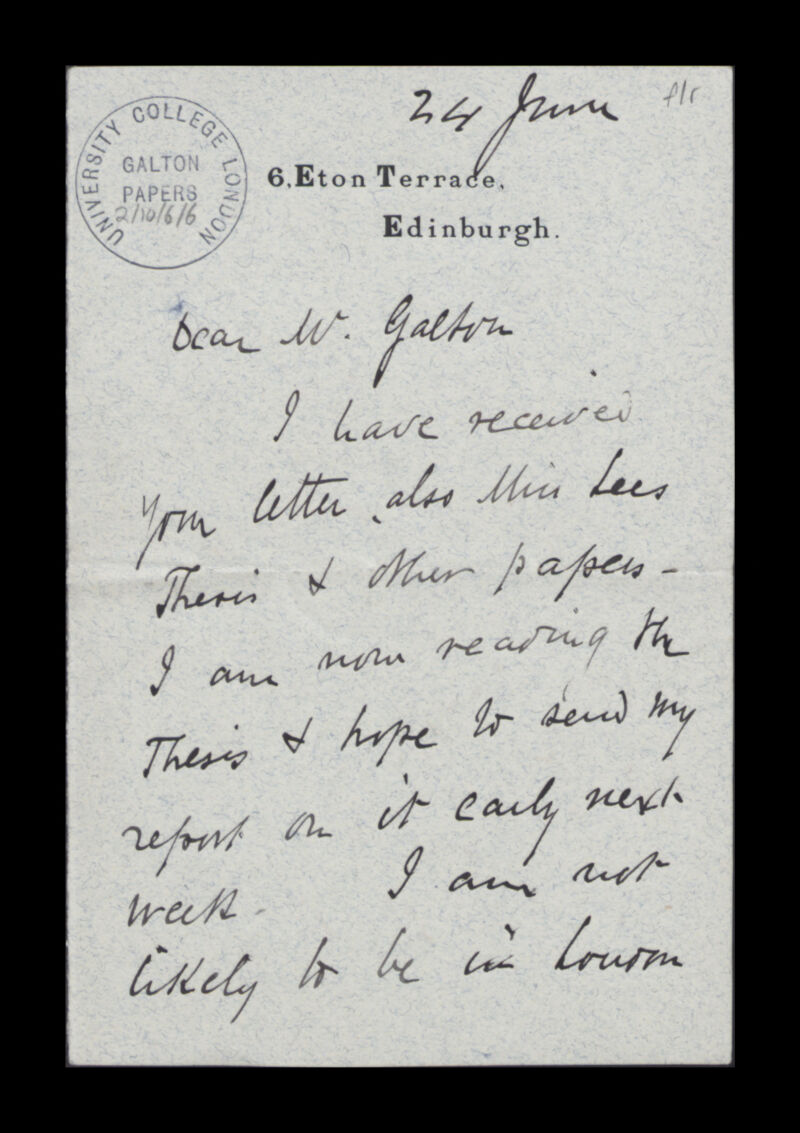 24 June
f1r
UNIVERSITY COLLEGE LONDON
GALTON
PAPERS
2/10/6/6
6, Eton Terrace,
Edinburgh.
Dear Mr. Galton
I have received
your letter, also Miss Lees
Thesis & other papers -
I am now reading the
Thesis & hope to send my
report on it early next
week - I am not
likely to be in London